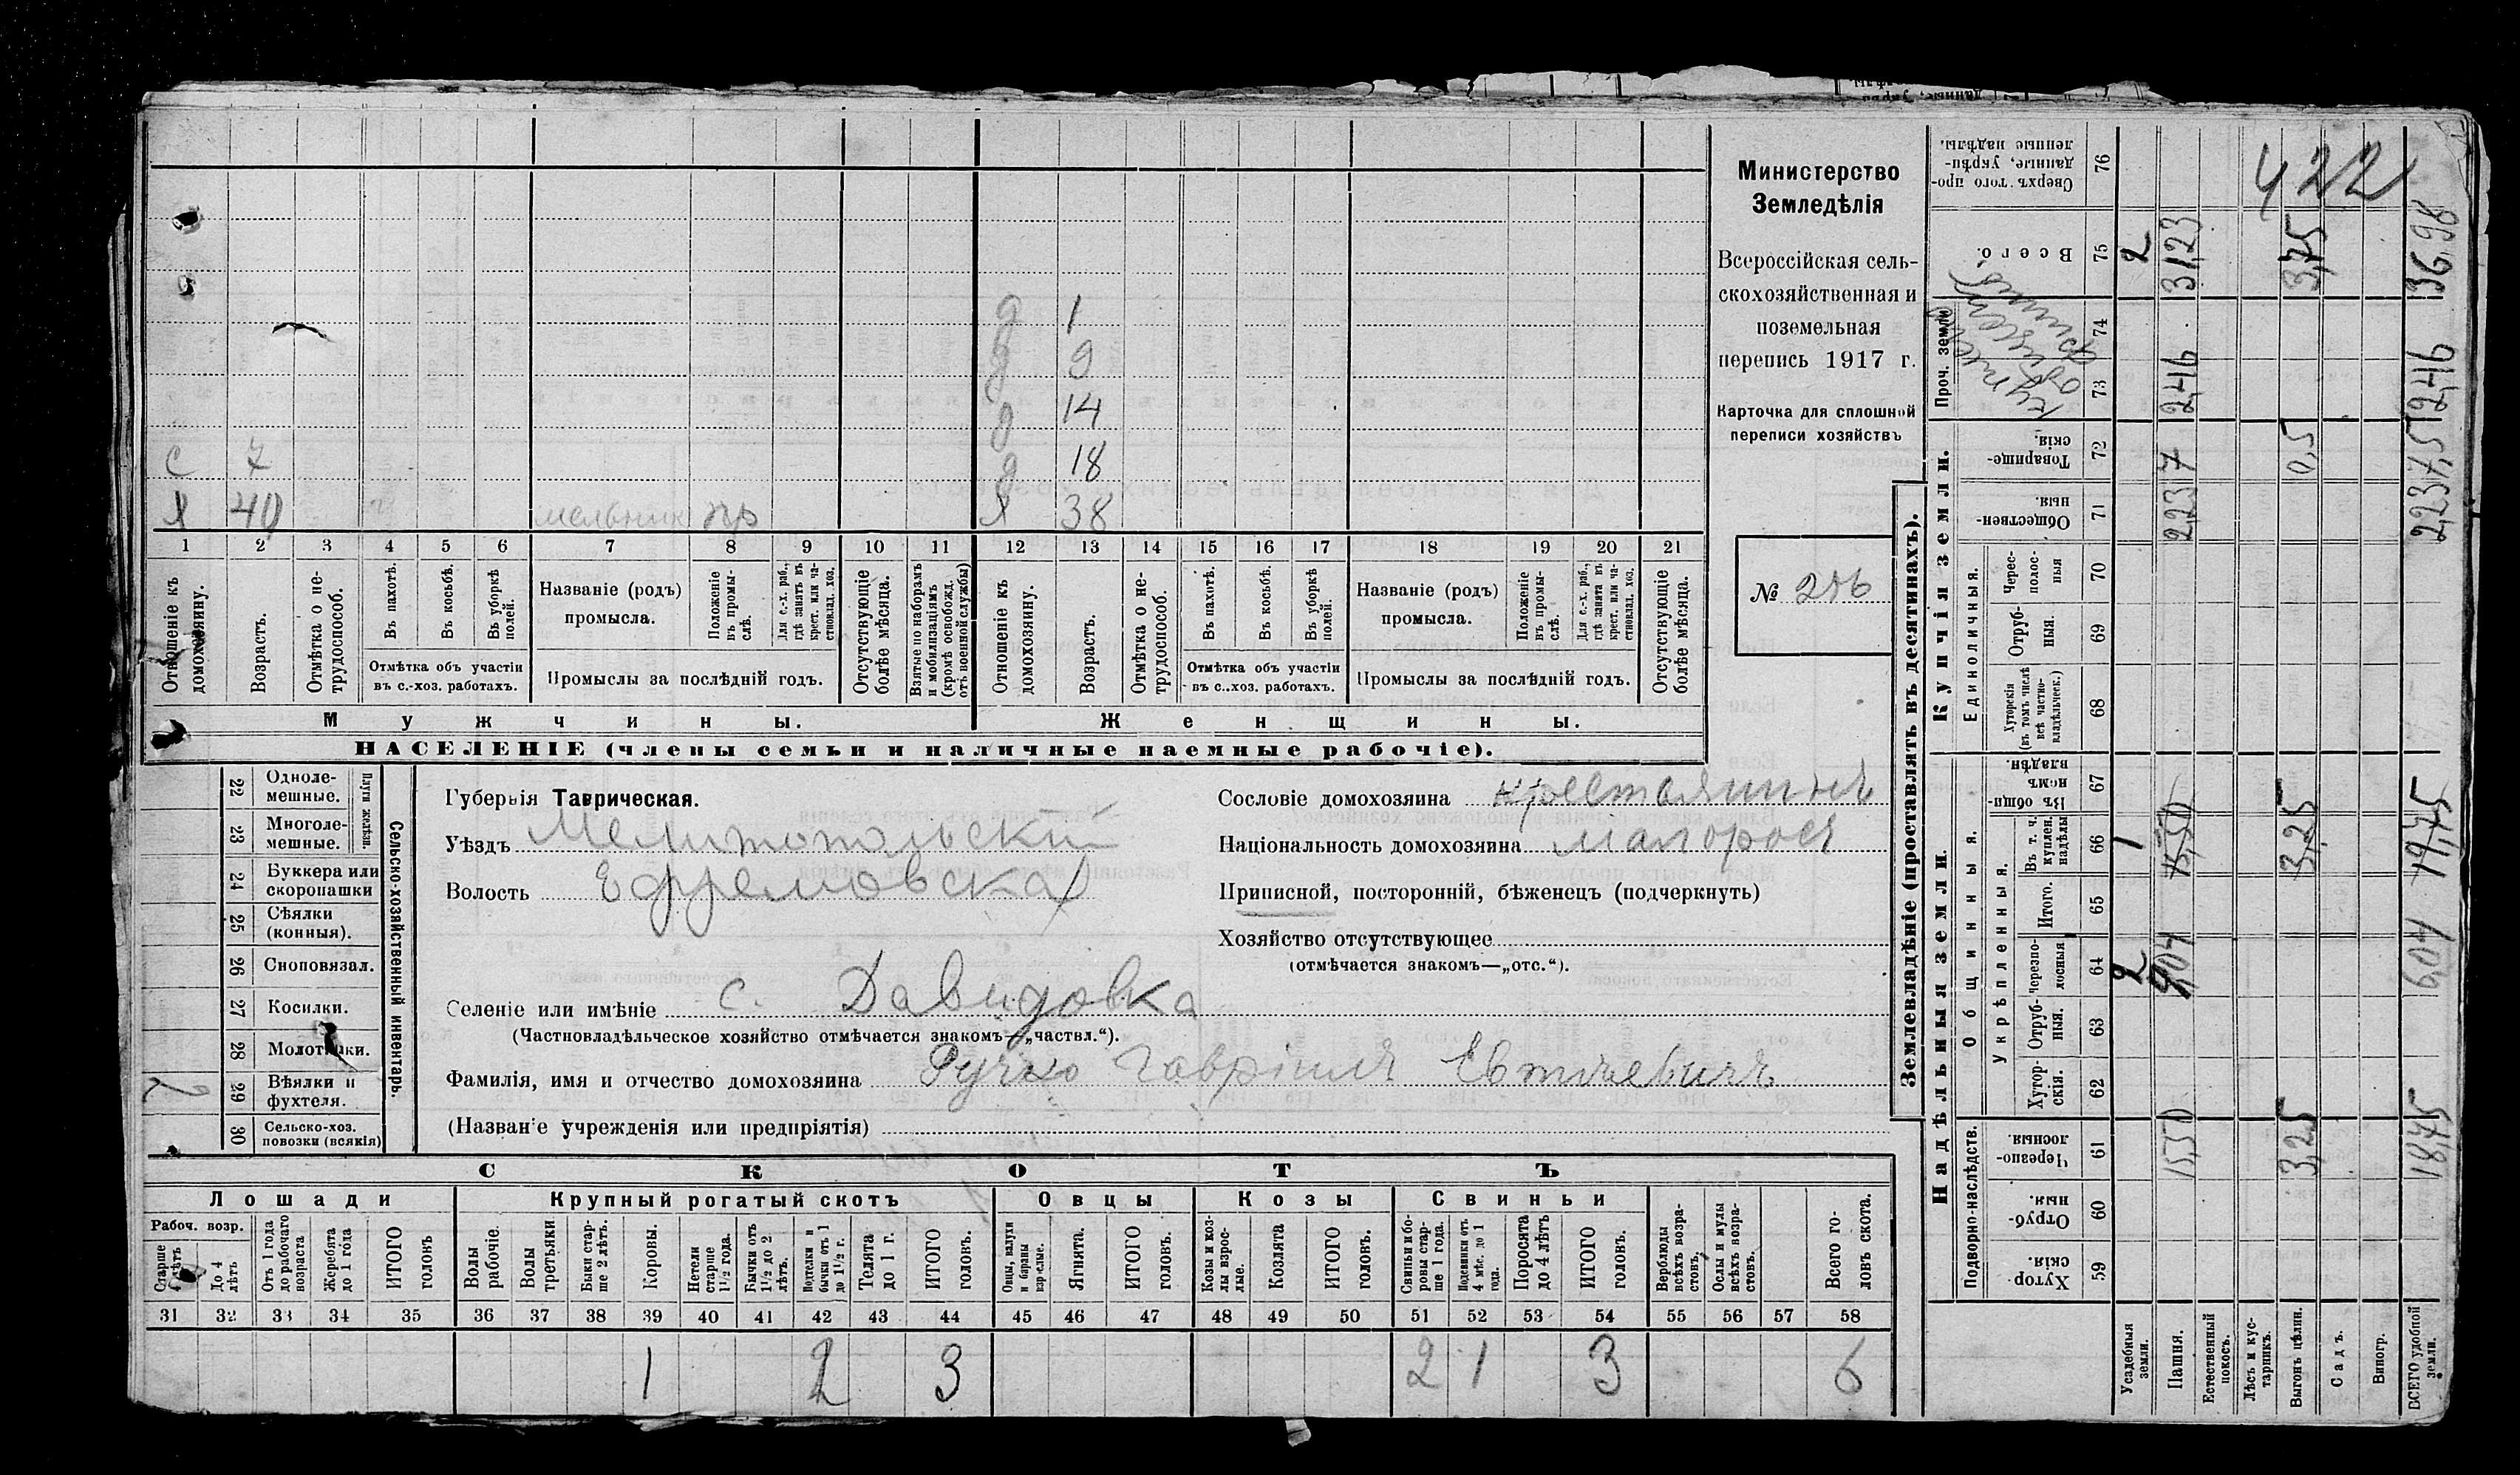 д 1
д 9
д 14
с 7 д 18
Х 40 мельник пр Х 38
1 2 3 4 5 6 7 8 9 10 11 12 13 14 15 16 17 18 19 20 21
Отношеніе къ домохозяину.
Возрастъ.
Отмѣтка о нетрудоспособ.
Въ пахотѣ.
Въ косьбѣ.
Въ уборкѣ полей.
Отмѣтка объ участіи
въ с.-хоз. работахъ.
Названіе (родъ)
промысла.
Положеніе въ промыслѣ.
Для с.-х. раб., гдѣ занятъ въ крест. или частновлад. хоз.
Промыслы за послѣдній годъ.
Отсутствующіе болѣе мѣсяца.
Взятые по наборамъ и мобилизаціямъ (кромѣ освобожд. отъ военной службы)
Отношеніе къ домохозяину.
Возрастъ.
Отмѣтка о нетрудоспособ.
Въ пахотѣ.
Въ косьбѣ.
Въ уборкѣ полей.
Отмѣтка объ участіи
въ с.-хоз. работахъ.
Названіе (родъ)
промысла.
Положеніе въ промыслѣ.
Для с.-х. раб., гдѣ занята въ крест. или частновлад. хоз.
Промыслы за послѣдній годъ.
Отсутствующіе болѣе мѣсяца.
Мужчины. Женщины.
НАСЕЛЕНІЕ (члены семьи и наличные наемные рабочіе).
Министерство
Земледѣлія
Всероссійская сель-
скохозяйственная и
поземельная
перепись 1917 г.
Карточка для сплошной
переписи хозяйствъ
№ 256
22 Одноле-
мешные.
23 Многоле-
мешные.
Плуги желѣзн.
24 Буккера или
скоропашки
25 Сѣялки
(конныя).
26 Сноповязал.
27 Косилки.
28 Молотилки.
29 Вѣялки и
фухтеля.
30 Сельско-хоз.
повозки (всякія)
Сельско-хозяйственный инвентарь.
Губернія Таврическая.
Уѣздъ Мелитопольскій
Волость Ефремовская
Селеніе или имѣніе с. Давидовка
(Частновладѣльческое хозяйство отмѣчается знакомъ—„частвл.“).
Фамилія, имя и отчество домохозяина Ручко Гавріилъ Евтѣевичъ
(Названіе учрежденія или предпріятія)
Сословіе домохозяина крестьянинъ
Національность домохозяина малоросъ
Приписной, посторонній, бѣженецъ (подчеркнуть)
Хозяйство отсутствующее
(отмѣчается знакомъ—„отс.“).
СКОТЪ
Лошади Крупный рогатый скотъ Овцы Козы Свиньи
Рабоч. возр.
Старше 4 лѣтъ
До 4 лѣтъ
Отъ 1 года до рабочаго возраста
Жеребята до 1 года
ИТОГО головъ
Волы рабочіе.
Волы третьяки
Быки старше 2 лѣтъ.
Коровы.
Нетели старше 1 1/2 года.
Бычки отъ 1 1/2 до 2 лѣтъ.
Подтелки и бычки отъ 1 до 1 1/2 г.
Телята до 1 г.
ИТОГО головъ.
Овцы, валухи и бараны взрослые.
Ягнята.
ИТОГО головъ.
Козы и козлы взрослые.
Козлята
ИТОГО головъ.
Свиньи и боровы старше 1 года.
Подсвинки отъ 4 мѣс. до 1 года.
Поросята до 4 лѣтъ
ИТОГО головъ.
Верблюды всѣхъ возрастовъ.
Ослы и мулы всѣхъ возрастовъ.
Всего головъ скота.
31 32 33 34 35 36 37 38 39 40 41 42 43 44 45 46 47 48 49 50 51 52 53 54 55 56 57 58
1 2 3 2 1 3 6
Землевладѣніе (проставлять въ десятинахъ).
Надѣльныя земли. Купчія земли. Проч. земли
Подворно-наслѣдств.
Общинныя.
Укрѣпленныя.
Единоличныя.
Хуторскія. 59
Отрубныя. 60
Черезполосныя. 61
Хуторскія. 62
Отрубныя. 63
Черезполосныя 64
Итого. 65
Въ т. ч. куплен. надѣлы 66
Въ общинномъ владѣн. 67
Хуторскія (въ томъ числѣ всѣ частновладѣльческ.) 68
Отрубныя. 69
Чересполосныя 70
Общественныя. 71
Товарищескія. 72
73
74
Всего. 75
Сверхъ того проданные, укрѣпленные надѣлы. 76
Усадебныя земли. 2 1 2
Пашня. 15,50 15,50 2,46 31,23
Естественный покосъ.
Лѣсъ и кустарникъ.
Выгонъ цѣлин. 3,25 3,25 0,5 3,75
Садъ.
Виногр.
ВСЕГО удобной земли. 18,75 19,75 2,46 36,98
422